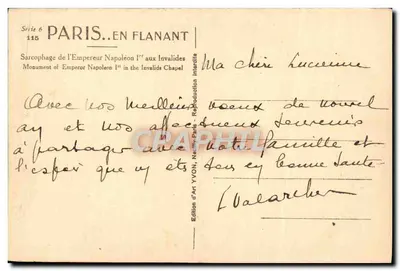 Série 6
115
PARIS..EN FLANANT
Sarcophage de l'Empereur Napoléon Ier aux Invalides
Monument of Emperor Napoleon Ist in the Invalids Chapel
Edition d'Art YVON, Reproduction interdite
Ma chère Lucienne
Avec nos meilleurs voeux de nouvel
an et nos affectueux souvenirs
à partager avec votre famille et
l'espoir que vs êtes tous en bonne santé
CPARAMA